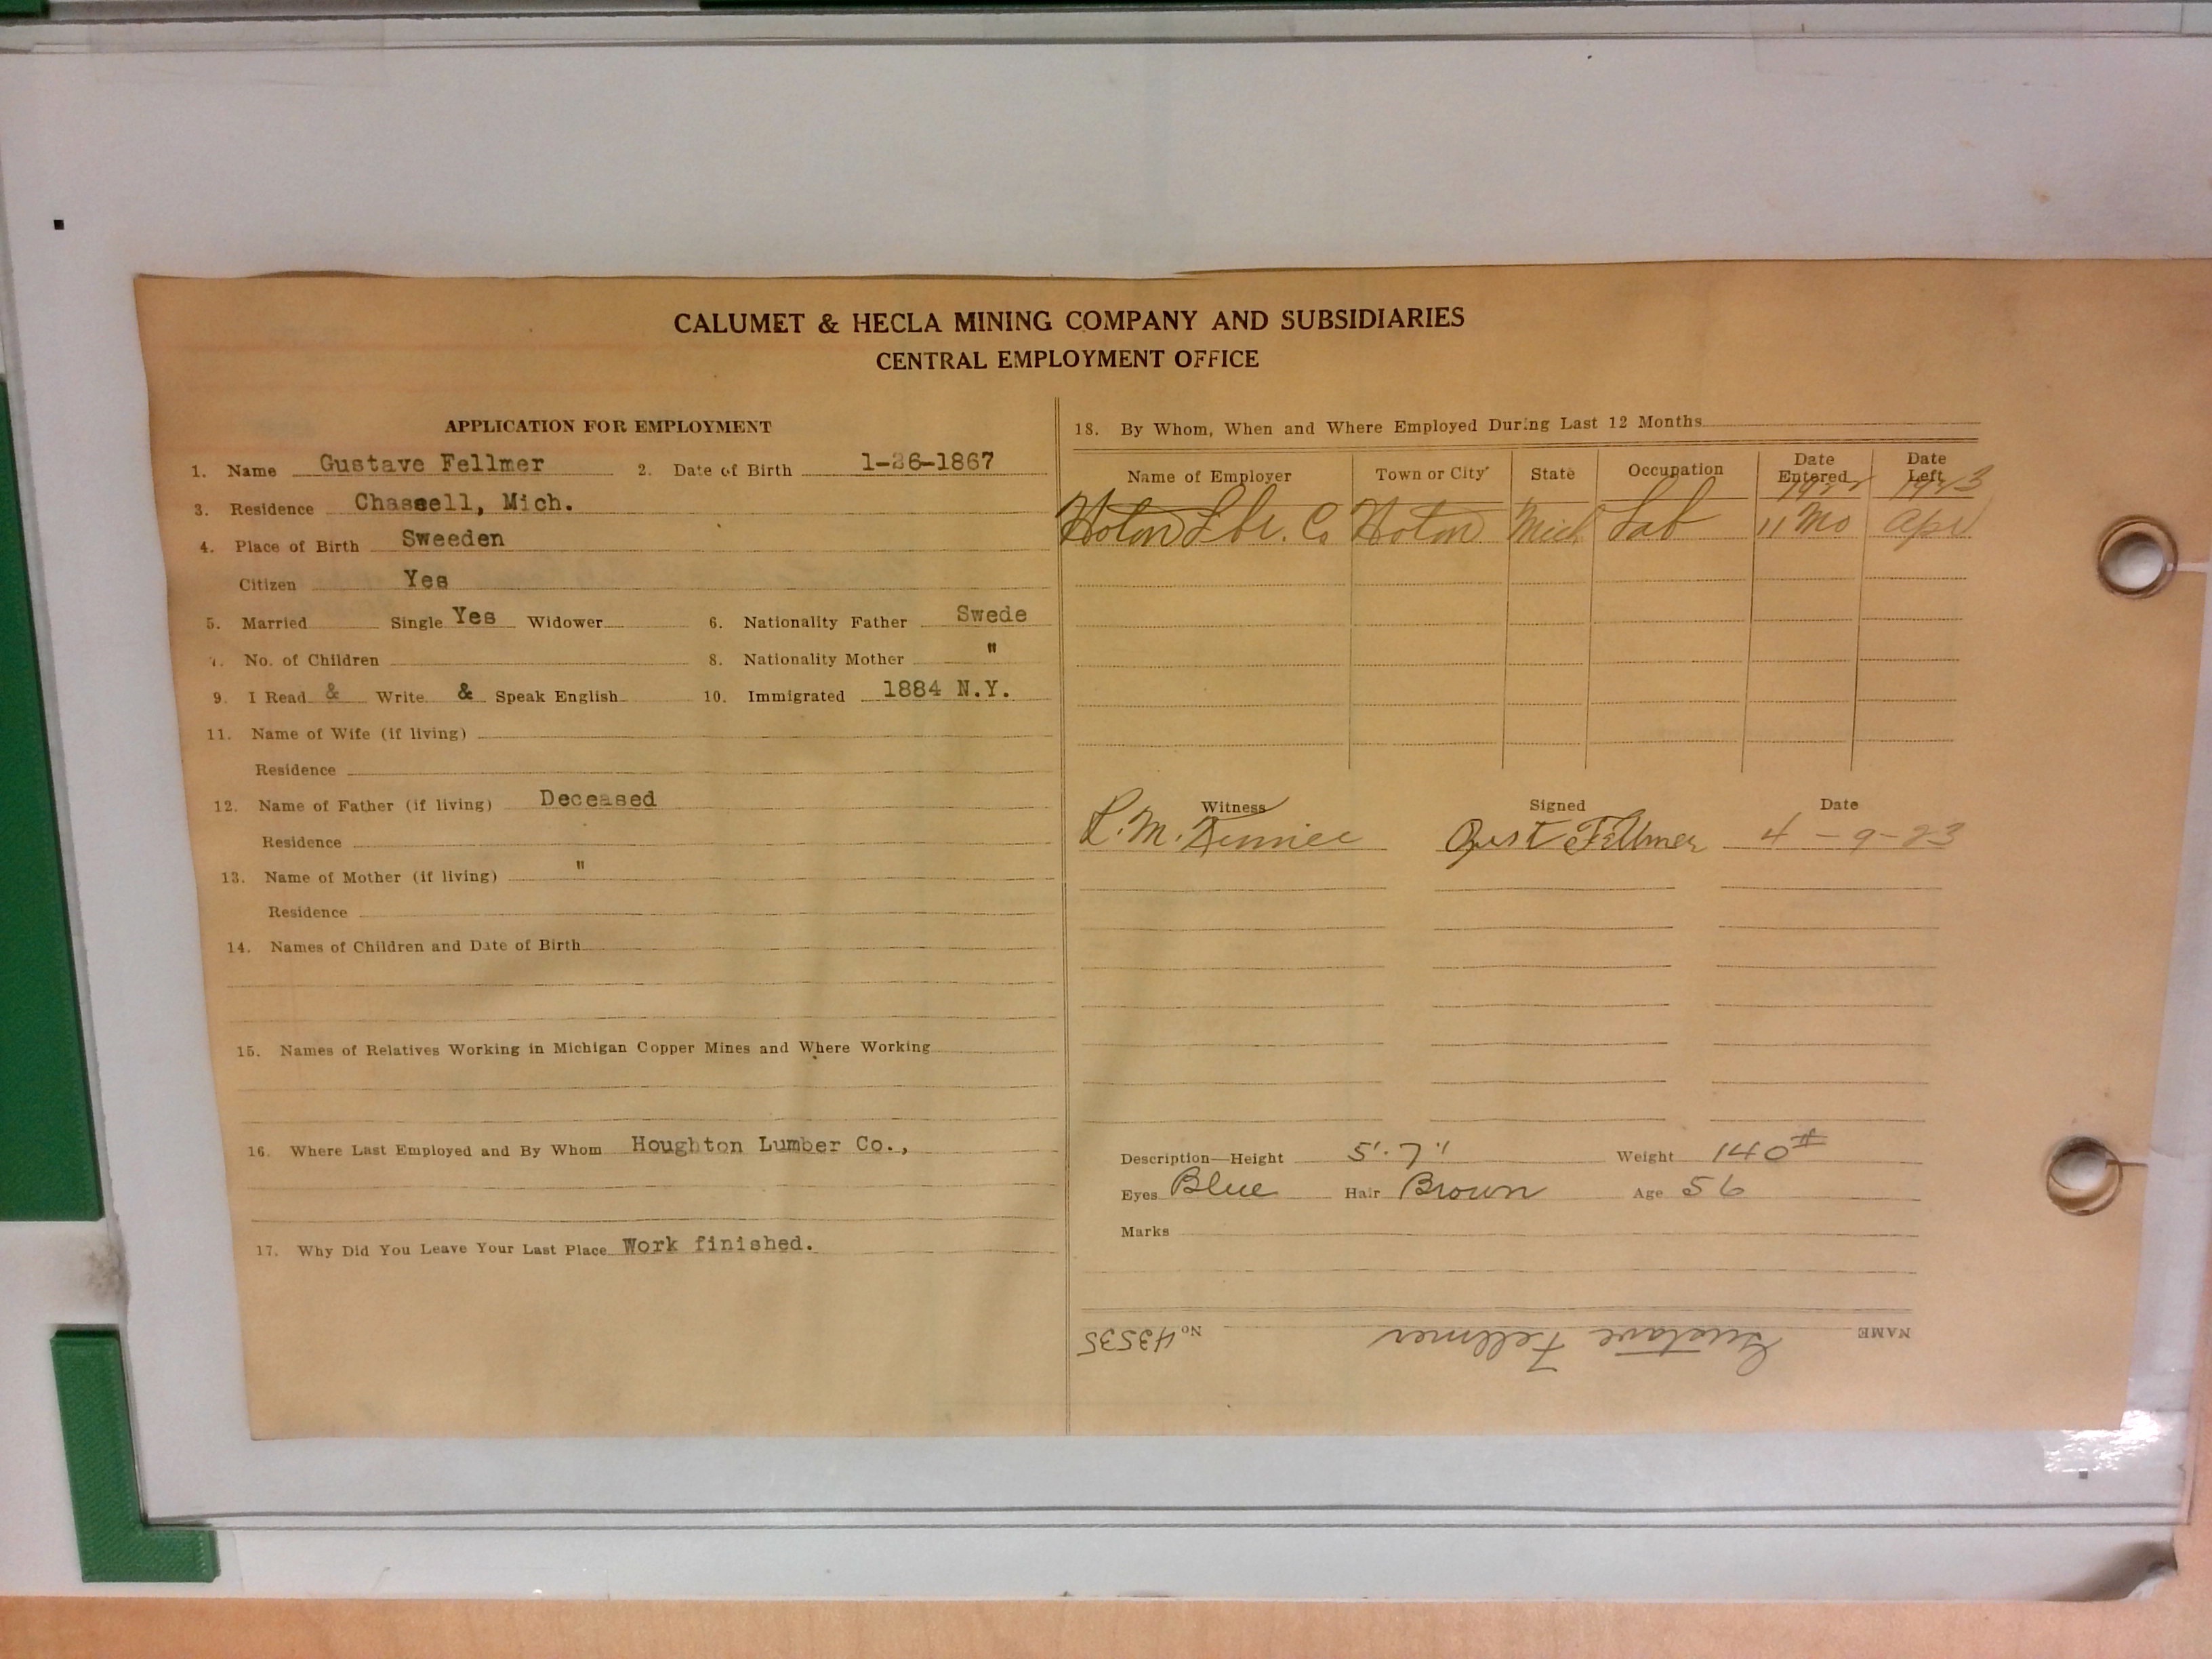 CALUMET & HECLA MINING COMPANY AND SUBSIDIARIES
CENTRAL EMPLOYMENT OFFICE
APPLICATION FOR EMPLOYMENT
1. Name Gustave Fellmer 2. Date of Birth 1-26-1867
3. Residence Chassell, Mich.
4. Place of Birth Sweeden
Citizen Yes
5. Married Single Yes Widower 6. Nationality Father Swede
7. No. of Children 8. Nationality Mother "
9. I Read & Write & Speak English 10. Immigrated 1884 N.Y.
11. Name of Wife (if living)
Residence
12. Name of Father (if living) Deceased
Residence
13. Name of Mother (if living) "
Residence
14. Names of Children and Date of Birth
15. Names of Relatives Working in Michigan Copper Mines and Where Working
16. Where Last Employed and By Whom Houghton Lumber Co.,
17. Why Did You Leave Your Last Place Work finished.
18. By Whom, When and Where Employed During Last 12 Months
Name of Employer Town or City State Occupation Date Entered Date Left
1922 1923
Hoton Lbr. Co Hoton Mich Lab 11 Mo Apr
Witness Signed Date
L. M. Gust Fellmer 4-9-23
Description—Height 5'.7" Weight 140#
Eyes Blue Hair Brown Age 56
Marks
NAME Gustave Fellmer No 43535